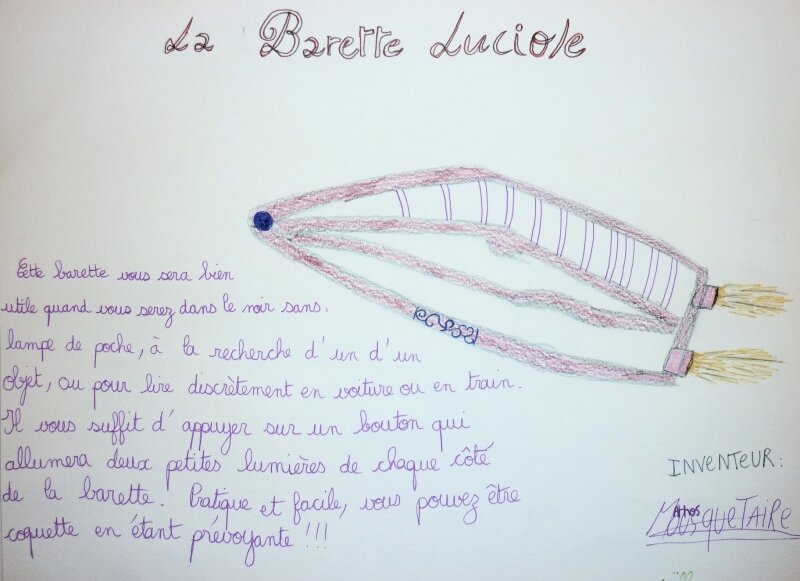 La Barette Luciole
Cette barette vous sera bien
utile quand vous serez dans le noir sans.
lampe de poche, à la recherche d'un d'un
objet, ou pour lire discrètement en voiture ou en train.
Il vous suffit d'appuyer sur un bouton qui
allumera deux petites lumières de chaque côté
de la barette. Pratique et facile, vous pouvez être
coquette en étant prévoyante !!!
INVENTEUR:
Athos
MousqueTAIRe